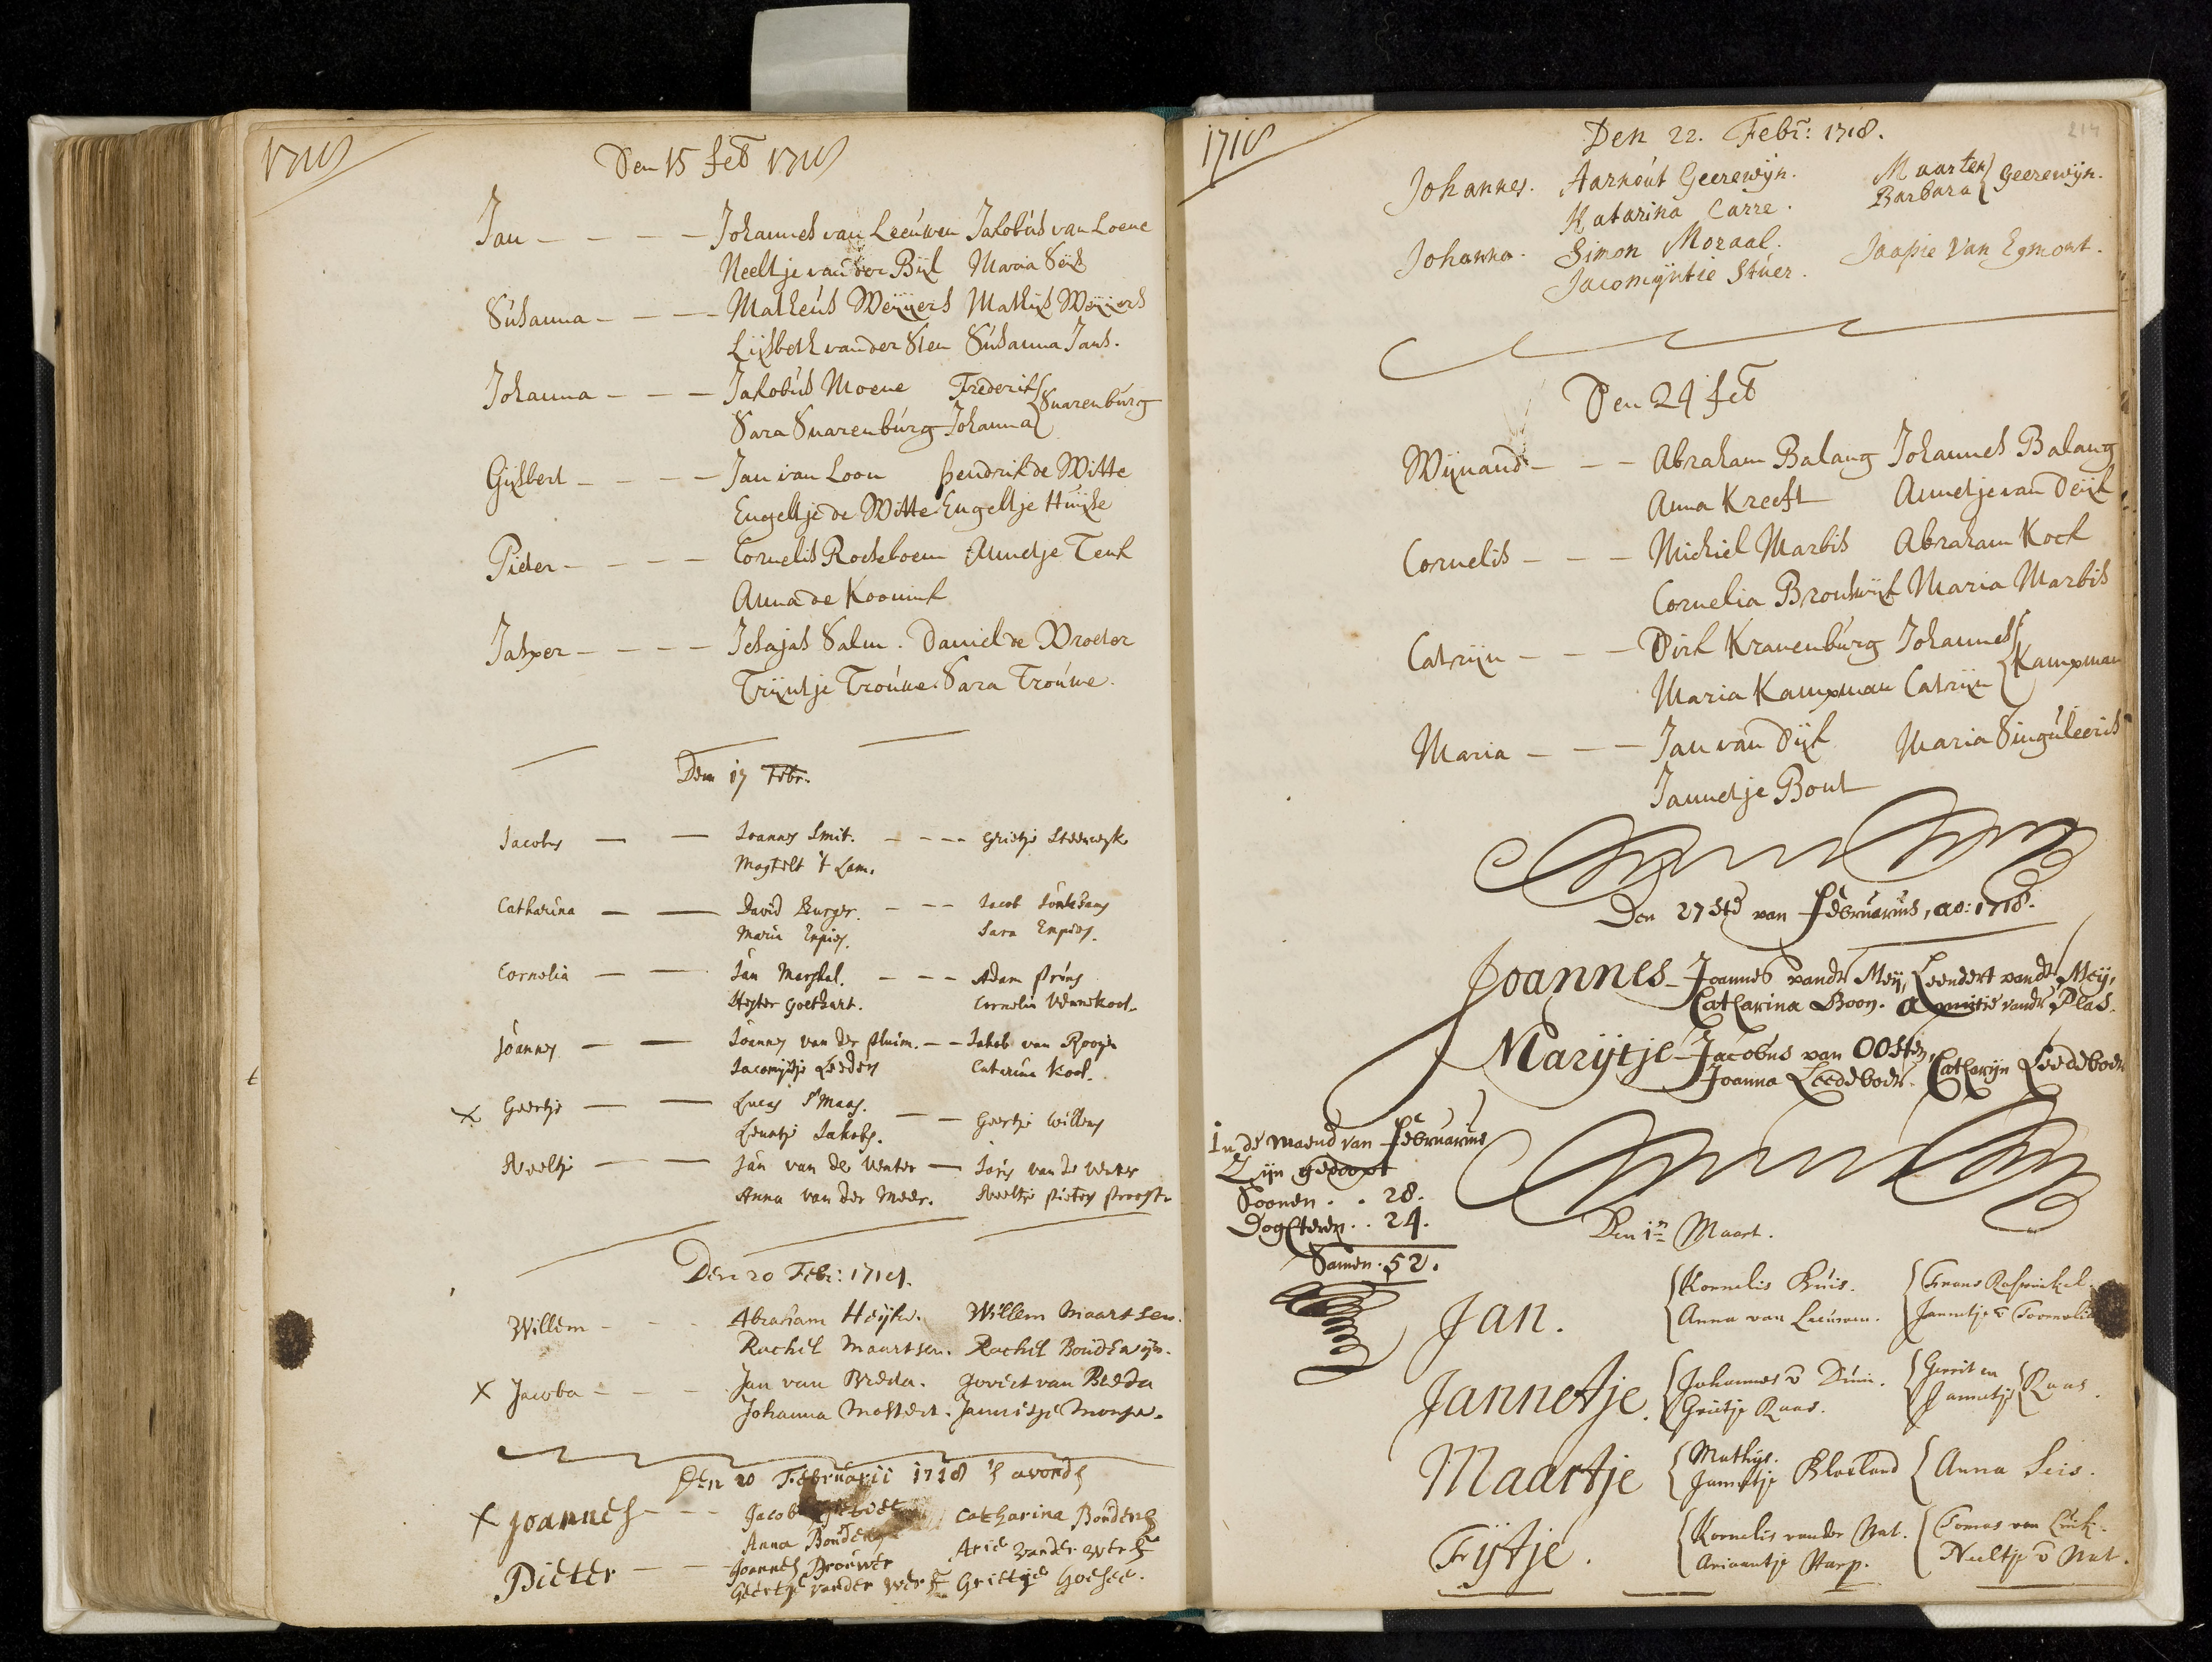 1718
Den 15 feb 1718
Jan - - - - Johannes van Leeúwen Jakobús van Loene
Neeltje van der Bijl Maria Seijs
Súsanna - - - - Matheús Weijers Mathijs Weijers
Lijsbeth van der Sten Súsanna Jans.
Johanna - - - Jakobús Moene Frederik
Sara Suarenbúrg Johanna Suarenbúrg
Gijsbert - - - - Jan van Loon Hendrik de Witte
Engeltje de Witte Engeltje Huijse
Pieter - - - - Cornelis Rockeboem Annetje Tenk
Anna de Koonink
Jasper - - - - Jesajas Salm. Daniel de Vroeter
Trijntje Troúwe. Sara Troúwe.
Den 17 Febr.
Jacobus — — Joannes Smit. - - - grietje Steenwijk
Magtelt 't Lam.
Catharina — — David Burger. - - - Jacob
Maria Enpies. Sara Enpies.
Cornelia — — Jan Marshal. - - - Adam prins
Hester goethart. Cornelia Vennekool.
Joannes — — Joannes van der pluim. - - Jakob van Rooijen
Jacomijntje Leeders Catarina Kool.
x Geertje — — Lucas S'Maas. — — Geertje Willems
Leuntje Jakobs.
Neeltje — — Jan van de Venter — Joris van de Venter
Anna van der Meer. Neeltje pieters proost.
Den 20 Febr: 1718.
Willem - - - Abraham Heijke. Willem Maartsen.
Rachel Maartsen. Rachel Boúdewijn.
x Jacoba - - - Jan van Breda. govert van Breda
Johanna Mostert. Jannitje Monje.
Den 20 Februarii 1718 's avonds
x Joannes - - - Jacob Catharina Boúdens
Anna Boúdens
Pieter - - - Joannes Broúwer Arie vander Werf
Geertje vander Werf Grietje Goesee.
1718
214
Den 22. Febr: 1718.
Johannes. Aarnoút Geerewijn. Maarten
Katarina Carre. Barbara Geerewijn.
Johanna. Simon Moraal. Jaapie Van Egmont.
Jacomijntie Stúer.
Den 24 feb
Wijnand - - - Abraham Balang Johannes Balang
Anna Kreeft Annetje van Deijl
Cornelis - - - Michiel Marbis Abraham Kock
Cornelia Bronswijk Maria Marbis
Catrijn - - - Dirk Kranenbúrg Johannes
Maria Kampman Catrijn Kampman
Maria - - - Jan van Dijk Maria Singúleeris
Jannetje Bout
Den 27ste van Februarius, ao: 1718.
Joannes - Joannes vandr Meij, Leendert vandr Meij,
Catharina Boon. Annitie vandr Plas.
Marijtje - Jacobus van Oosten, Catharijn Leedeboer
Joanna Leedeboer.
In de maend van Februarius
Zijn gedoopt
Soonen . . 28.
Dogteren . . 24.
Samen . 52.
Den 1n Maart.
Jan. Kornelis Kúis. Frans Raspinkel.
Anna van Leeúwen. Jannitje v Toornelis
Jannetje. Johannes v Duin. Gerrit en
Grietje Raas. Jannetje Raas.
Maartje Mathijs. Anna Seis.
Jannetje Blocland
Fijtje. Kornelis vander Nat. Tomas van
Ariaantje Harp. Neeltje v Nat.